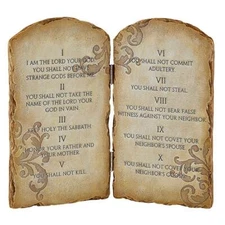 I
I AM THE LORD YOUR GOD
YOU SHALL NOT
STRANGE GODS BEFORE
II
YOU SHALL NOT TAKE
THE NAME OF THE LORD YOUR
GOD IN VAIN
III
KEEP HOLY THE SABBATH
IV
YOUR FATHER AND
YOUR MOTHER
V
YOU SHALL NOT KILL.
VI
YOU SHALL NOT COMMIT
ADULTERY.
VII
YOU SHALL NOT STEAL.
VIII
YOU SHALL NOT BEAR FALSE
WITNESS AGAINST YOUR NEIGHBOR
IX
YOU SHALL NOT COVET YOUR
NEIGHBOR'S SPOUSE
X
YOU SHALL NOT COVET YOUR
NEIGHBOR'S